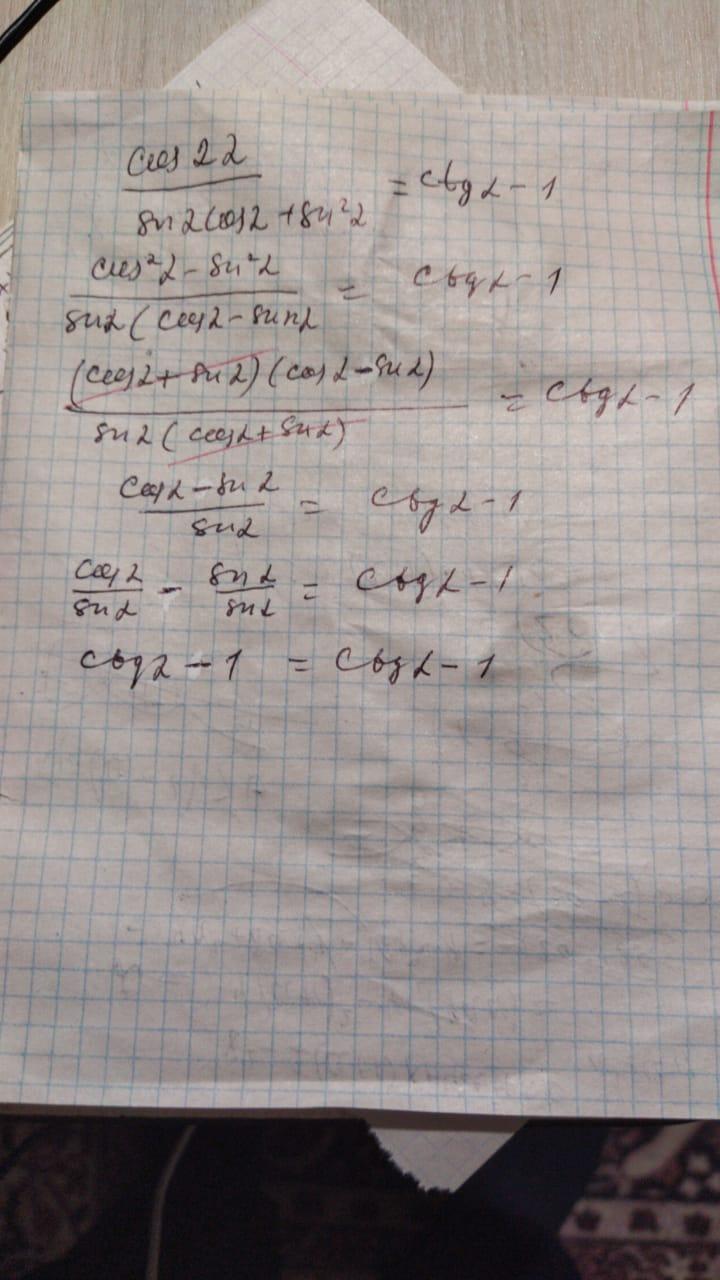 cos 2α / sin α cos α + sin²α = ctg α - 1
cos²α - sin²α / sin α (cos α - sin α = ctg α - 1
(cos α + sin α) (cos α - sin α) / sin α (cos α + sin α) = ctg α - 1
cos α - sin α / sin α = ctg α - 1
cos α / sin α - sin α / sin α = ctg α - 1
ctg α - 1 = ctg α - 1